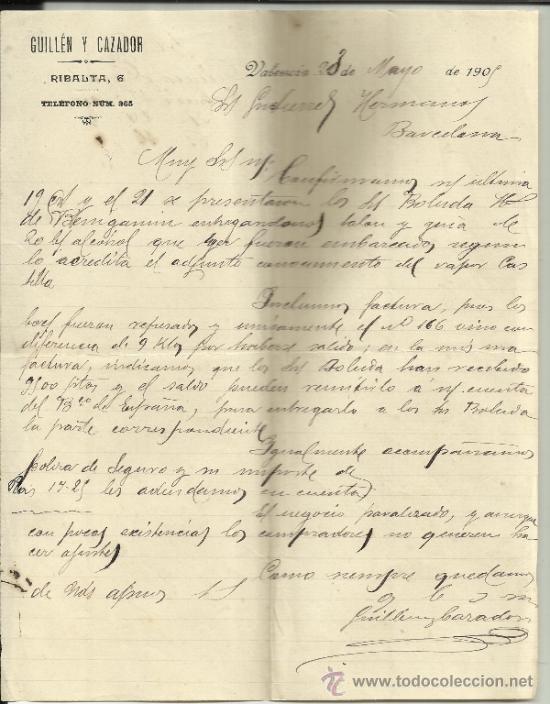 GUILLÉN Y CAZADOR
RIBALTA, 6
TELÉFONO NÚM. 365
Valencia 23 de Mayo de 1905
Hermanos
Barcelona
Muy
Confirmamos ultima
19 y el 21 se presentaron los Boluda
de Beniganim entregandonos talon y guia de
20 alcohol que ayer fueron embarcados segun
lo acredita el adjunto conocimiento del vapor Cas
tilla
Incluimos factura, pues los
fueron repesados y unicamente el nº 166 vino con
diferencia de 9 Klos por haberse salido; en la mis ma
factura, indicamos que los Boluda han recibido
y el saldo pueden remitirlo a cuenta
del Bco de España, para entregarlo a los Boluda
la parte correspondiente
Igualmente acompañamos
Poliza de Seguro y su importe de
14-25 les adeudamos en cuenta
El negocio paralizado, y aunque
con pocas existencias los compradores no quieren ha
cer ajustes
Como siempre quedamos
de
Guillen y Cazador
todocoleccion
www.todocoleccion.net